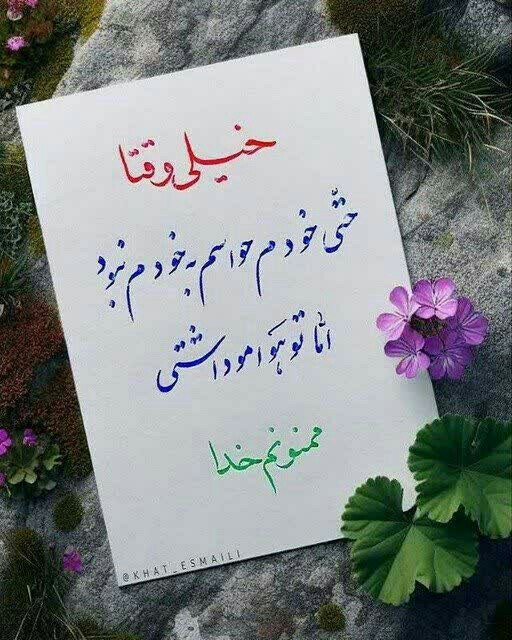 خیلی وقتا
حتّی خودم حواسم به خودم نبود
امّا تو هَوامو داشتی
ممنونم خدا
@KHAT_ESMAILI